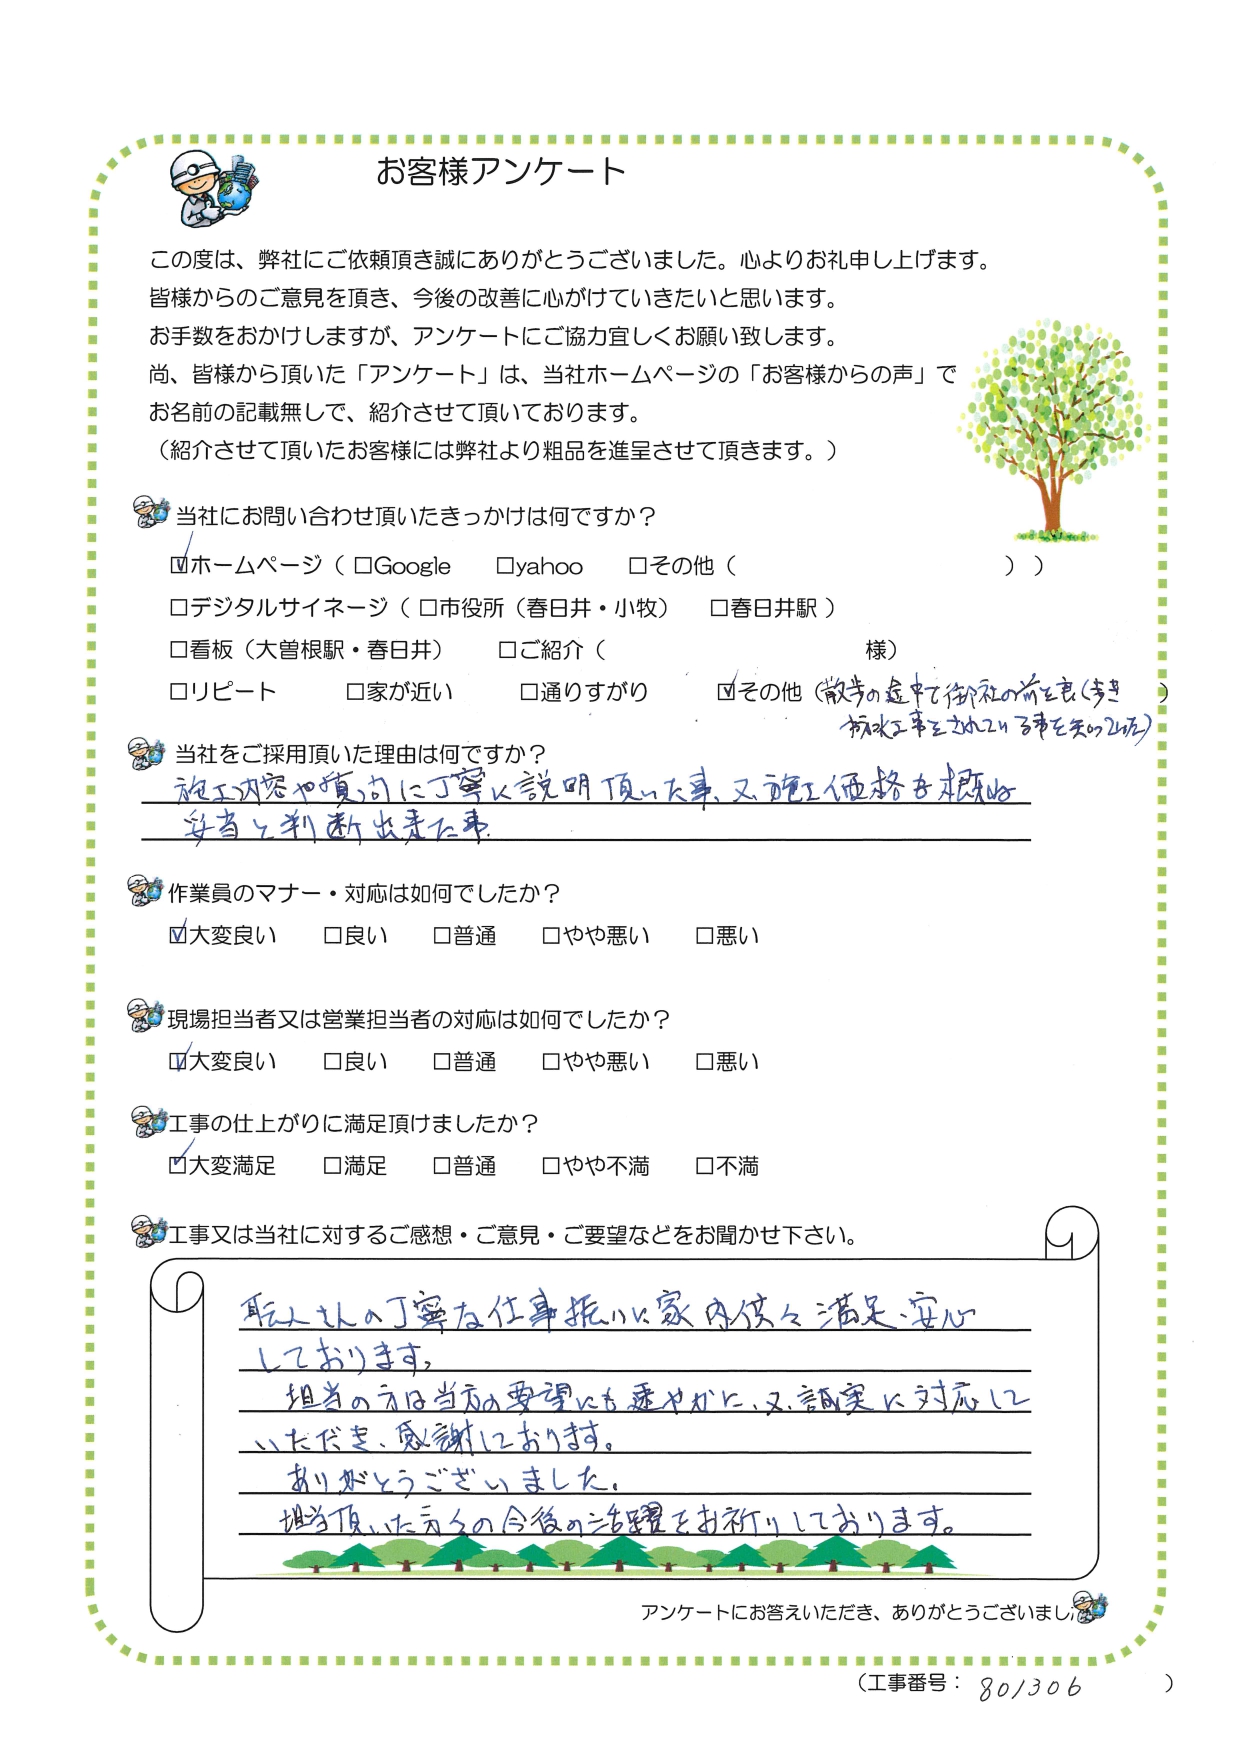 お客様アンケート
この度は、弊社にご依頼頂き誠にありがとうございました。心よりお礼申し上げます。
皆様からのご意見を頂き、今後の改善に心がけていきたいと思います。
お手数をおかけしますが、アンケートにご協力宜しくお願い致します。
尚、皆様から頂いた「アンケート」は、当社ホームページの「お客様からの声」で
お名前の記載無しで、紹介させて頂いております。
（紹介させて頂いたお客様には弊社より粗品を進呈させて頂きます。）
当社にお問い合わせ頂いたきっかけは何ですか？
☑ホームページ（ □Google □yahoo □その他（ ））
□デジタルサイネージ（ □市役所（春日井・小牧） □春日井駅 ）
□看板（大曽根駅・春日井） □ご紹介（ 様）
□リピート □家が近い □通りすがり ☑その他（散歩の途中で御社の前を良く歩き
防水工事をされている事を知っていた）
当社をご採用頂いた理由は何ですか？
施工内容や質問に丁寧に説明頂いた事、又施工価格も概ね
妥当と判断出来た事
作業員のマナー・対応は如何でしたか？
☑大変良い □良い □普通 □やや悪い □悪い
現場担当者又は営業担当者の対応は如何でしたか？
☑大変良い □良い □普通 □やや悪い □悪い
工事の仕上がりに満足頂けましたか？
☑大変満足 □満足 □普通 □やや不満 □不満
工事又は当社に対するご感想・ご意見・ご要望などをお聞かせ下さい。
職人さんの丁寧な仕事振りに家内供々満足、安心
しております。
担当の方は当方の要望にも速やかに、又、誠実に対応して
いただき、感謝しております。
ありがとうございました。
担当頂いた方々の今後の活躍をお祈りしております。
アンケートにお答えいただき、ありがとうございまし
（工事番号： 801306 ）